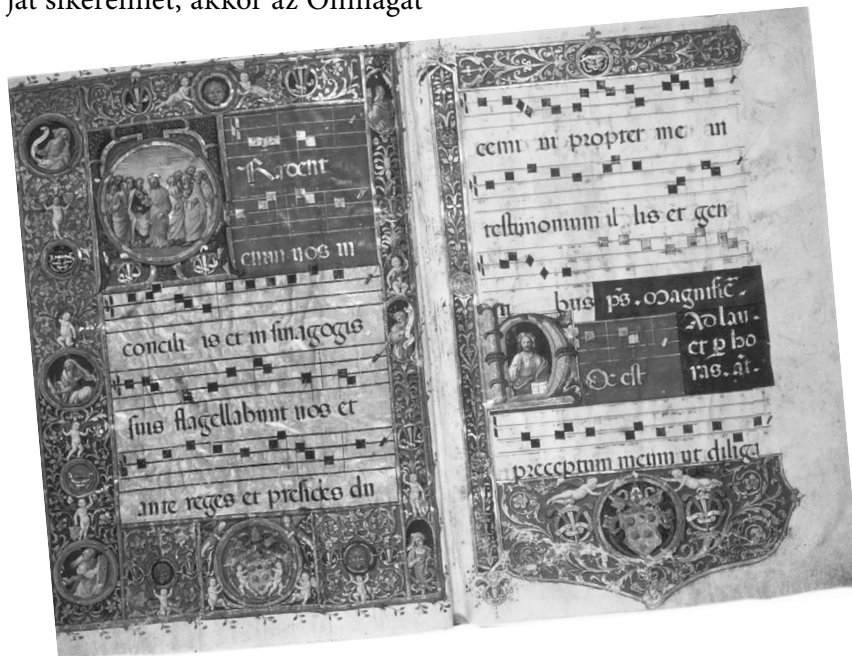 ját sikerélmét, akkor az Önmagát
Tradent
enim vos in
concili is et in sinagogis
suis flagellabunt vos et
ante reges et presides du
cemi ni propter me in
testimonium il lis et gen
ti bus ps. Magnific̄.
Ad lau.
et p ho
ras. añ.
Oc est
preceptum meum ut diliga